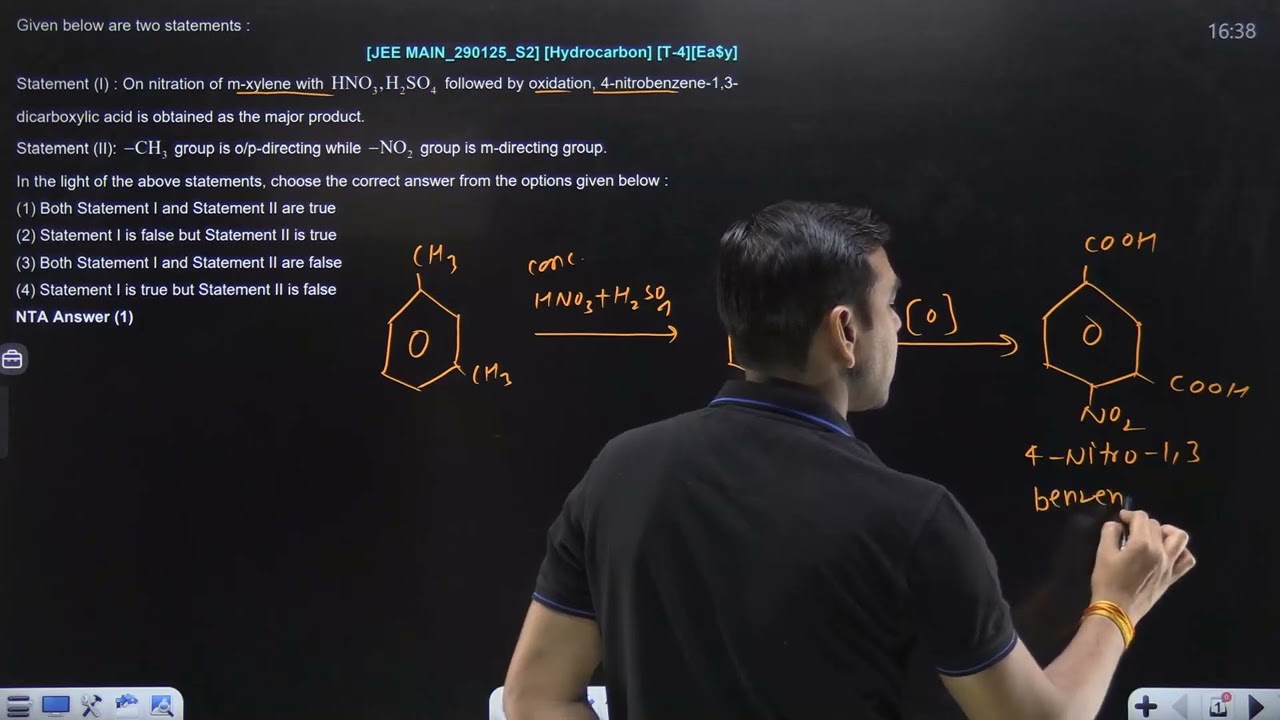 Given below are two statements :
16:38
[JEE MAIN_290125_S2] [Hydrocarbon] [T-4][Ea$y]
Statement (I) : On nitration of m-xylene with HNO₃,H₂SO₄ followed by oxidation, 4-nitrobenzene-1,3-
dicarboxylic acid is obtained as the major product.
Statement (II): –CH₃ group is o/p-directing while –NO₂ group is m-directing group.
In the light of the above statements, choose the correct answer from the options given below :
(1) Both Statement I and Statement II are true
(2) Statement I is false but Statement II is true
(3) Both Statement I and Statement II are false
(4) Statement I is true but Statement II is false
NTA Answer (1)
CH₃
CH₃
conc.
HNO₃+H₂SO₄
[O]
COOH
COOH
NO₂
4-Nitro-1,3
benzen
1
0